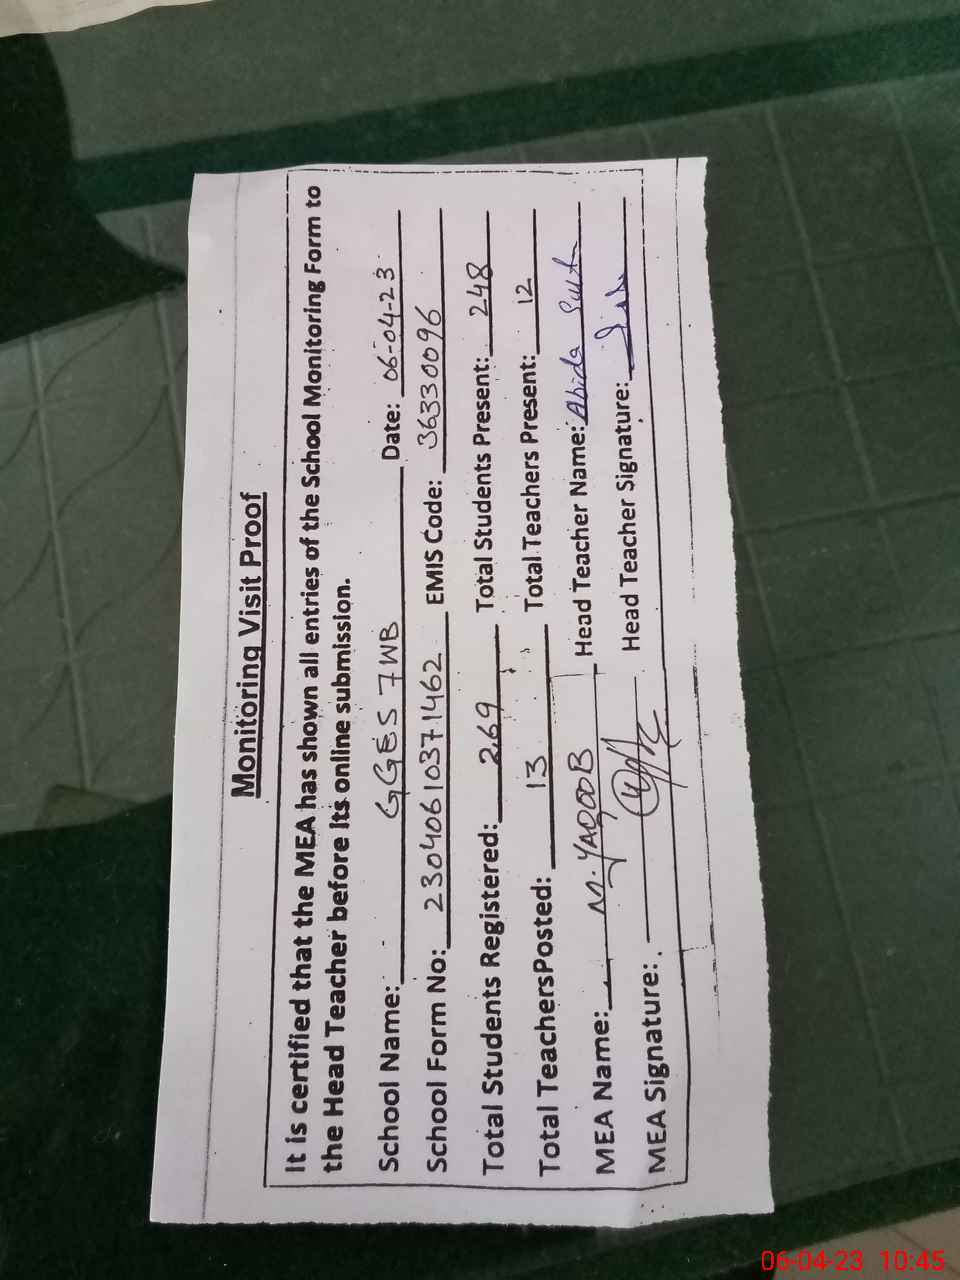 Monitoring Visit Proof
It is certified that the MEA has shown all entries of the School Monitoring Form to
the Head Teacher before its online submission.
School Name: GGES 7WB Date: 06-04-23
School Form No: 23040610371462 EMIS Code: 36330096
Total Students Registered: 269 Total Students Present: 248
Total TeachersPosted: 13 Total Teachers Present: 12
MEA Name: M. YAQOOB Head Teacher Name: Abida
MEA Signature: Head Teacher Signature:
06-04-23 10:45